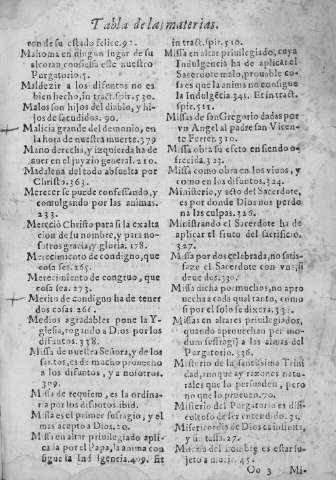 Tabla de las materias.
ron de su estado felice. 92.
Mahoma en ningun lugar de su
alcoran confiesa este nuestro
Purgatorio. 5.
Maldezir a los difuntos no es
bien hecho, in tract. spir. 530.
Malos son hijos del diablo, y hi-
jos de sacudidos. 90.
Malicia grande del demonio, en
la hora de nuestra muerte. 379
Mano derecha, y izquierda ha de
auer en el juyzio general. 210.
Madalena del todo absuelta por
Christo. 363.
Merecer se puede confessando, y
comulgando por las animas.
233.
Mereciò Christo para si la exalta
cion de su nombre, y para no-
sotros gracia, y gloria. 178.
Merecimiento de condigno, que
cosa sea. 265.
Merecimiento de congruo, que
cosa sea. 273.
Merito de condigno ha de tener
dos cosas 266.
Medios agradables pone la Y-
glesia, rogando a Dios por los
difuntos. 338.
Missa de nuestra Señora, y de los
santos, es de mucho prouecho
a los difuntos, y a nosotros.
309.
Missa de requiem, es la ordina-
ria por los difuntos. ibid.
Missa es el primer sufragio, y el
mas acepto a Dios. 20.
Missa en altar priuilegiado apli-
cala por el Papa, la anima con
sigue la Indulgencia. 409. Et
in tract. spir. 510.
Missa en altar priuilegiado, cuya
Indulgencia ha de aplicar el
Sacerdote malo, prouable co-
sa es que la anima no consigue
la Indulgecia 341. Et in tract.
spir. 511.
Missas de san Gregorio dadas por
vn Angel al padre san Vicen-
te Ferrer. 310.
Missa obra su efeto en siendo o-
frecida. 323.
Missa como obra en los viuos, y
como en los difuntos. 324.
Ministerio, y acto del Sacerdote,
es por donde Dios nos perdo
na las culpas. 326.
Ministrando el Sacerdote ha de
aplicar el fruto del sacrificio.
327.
Missa por dos celebrada, no satis-
faze el Sacerdote con vna, si
deue dos. 330.
Missa dicha por muchos, no apro
uecha a cada qual tanto, como
si por el solo se dixera. 331.
Missas en altares priuilegiados,
quando aprouechan per mo-
dum suffragij a las almas del
Purgatorio. 336.
Misterio de la santissima Trini
dad, aunque ay razones natura
les que lo persuaden, pero
no que lo prouen. 70.
Misterio del Purgatorio es difi-
cultoso de ser entendido. 31.
Misericordia de Dios es infinita,
y sin tassa. 27.
Miseria del hombre es estar su-
jeto a morir. 45.
Oo 3 Mi-